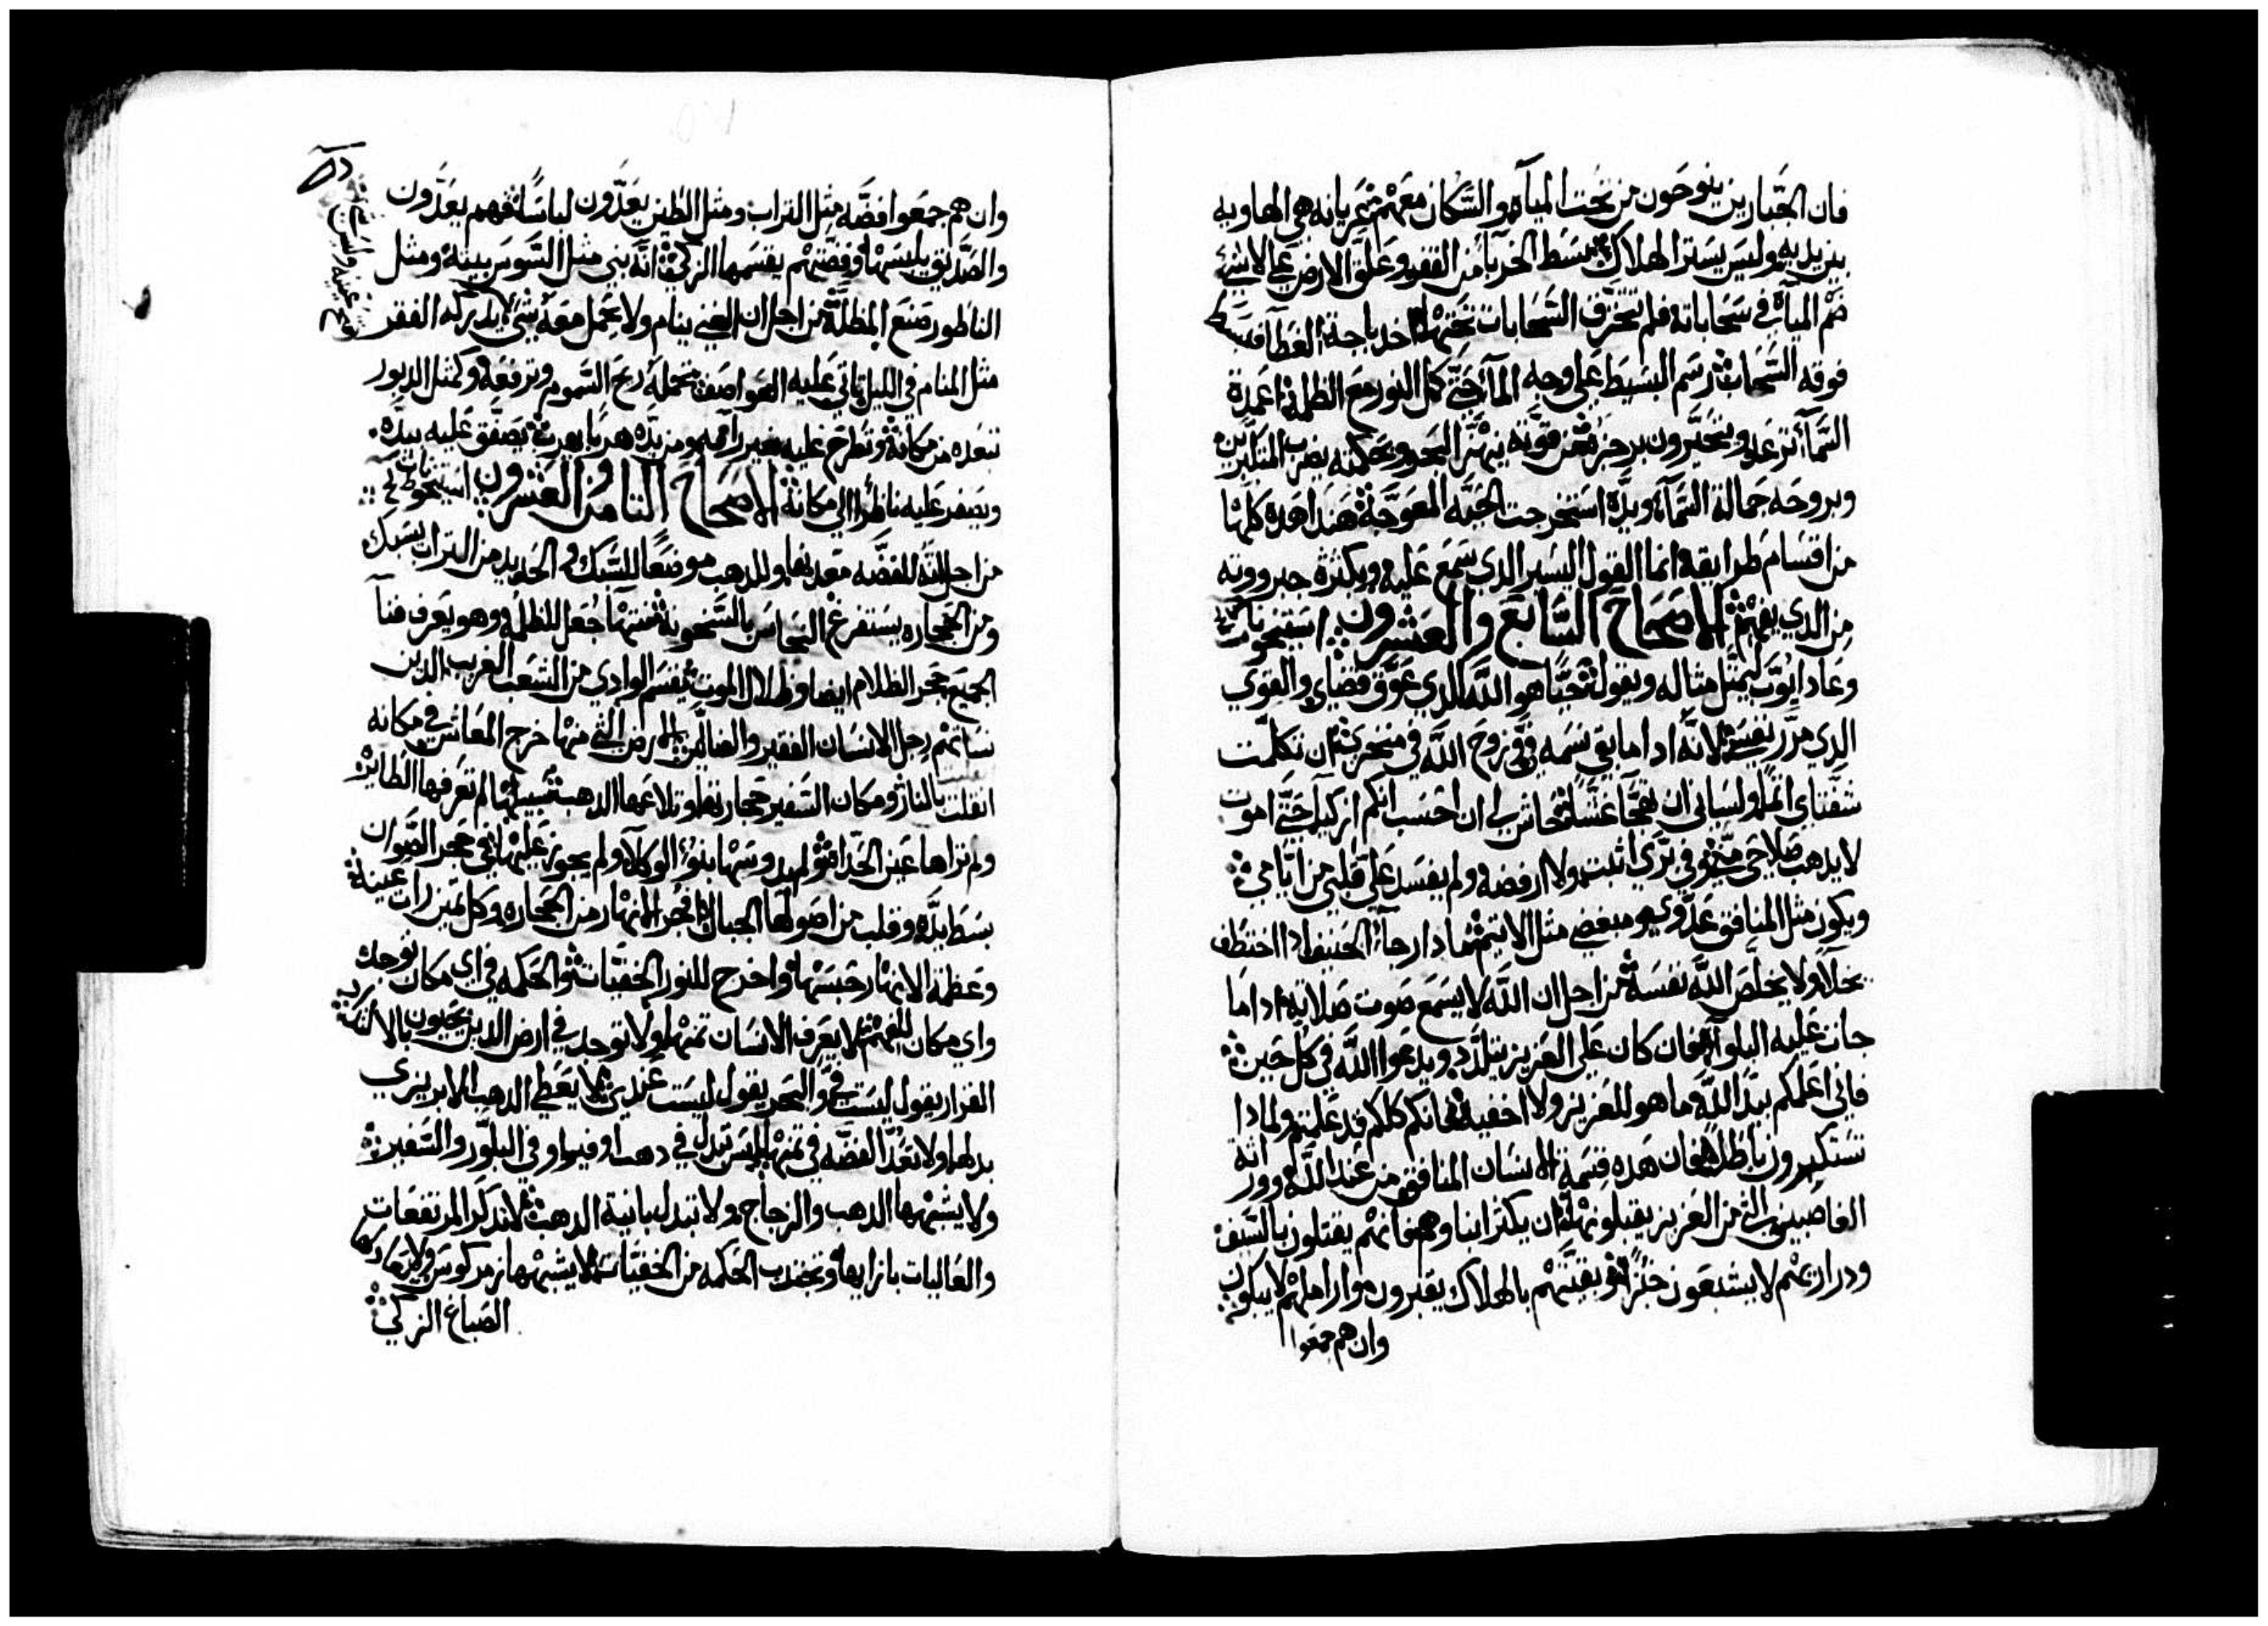 فان الجبارين ينوحون من تحت المياه والسكان معهم عريانه هي الهاويه
بين يديه وليس يستر الهلاك بسط الخربا من القفر وعلق الارض على لاشي
ضم المياه في سحاباته فلم تتخرق السحابات تحتها اخد باجنة الغطا فبسط
فوقه السحاب رسم البسيط على وجه الما حتى كل النور مع الظلمة اعمدة
السما ترعد ويتحيرون برجزه من قوته ينهز البحر وبحكمته يضرب المتكبرين
وبروحه جمالة السما ويده استخرجت الحيه المعوجة هدا هده كلها
من اقسام طرايقه انما القول اليسير الدي سمع عليه وبكثرة جبروته
من الدي يفهم الاصحاح السابع والعشرون استيخو
وعاد ايوب ليمثل مثاله ويقول حيا هو الله الدي عوق قضاي والقوي
الدي مرر نفسي لانه ادا ما بقي نسمه في وروح الله في منخري ان تكلمت
شفتاي اثما ولساني ان يهجا غشا حاش لي ان احسب انكم ازكيا حتى اموت
لا يدهب صلاحي مني في بري اثبت ولا ارفضه ولم يفسد على قلبي من ايامي
ويكون مثل المنافق عدوي ومبغضي مثل الاتيم ما دا رجاء الحنيف ادا اختطف
بخلا ولا يخلص الله نفسه من اجل ان الله لا يسمع صوت صلاته ادا ما
جات عليه البلوا فان كان على العزيز يتلدد ويدعوا الله في كل حين
فاني اعلمكم بيد الله ما هو للعزيز ولا اخفيه فانكم كلكم قد علمتم ولمادا
تستكبرون باطلا فان هده قسمة الانسان المنافق من عند الله وورثة
الغاصبين التي من العزيز يقبلونها ان يكثر ابناوهم فانهم يقتلون بالسيف
ودراريهم لا يشبعون خبزا وبقيتهم بالهلاك يقبرون وارامليهم لا يبكون
وان هم جمعوا
وان هم جمعوا فضه مثل التراب ومثل الطين يعدون لباسا فهم يعدون
والصديق يلبسها وفضتهم يقسمها الزكي انه بني مثل السوس بيته ومثل
الناطور صنع المظلة من اجل ان الغني ينام ولا يحمل معه شي بل يدركه الفقر
مثل المنام في الليل تاتي عليه العواصف تحمله ريح السموم وترفعه وكمثل الدبور
تبعده من مكانه وتطرح عليه بغير رافه ومن يده هربا يهرب يصفق عليه بيده
ويصفر عليه ناظرا الى مكانه الاصحاح التامن والعشرون استيخو
من اجل انه للفضه معدنها وللدهب موضعا للسبك والحديد من التراب يسبك
ومن الحجاره يستفرغ النحاس بالسخونة منتها جعل للظلمه وهو يعرف فنا
الجميع حجر الظلام ايضا وظلال الموت يقسم الوادي من الشعب الغريب الدين
نساهم رجل الانسان الفقير والضالين الارض التي منها خرج المعاش في مكانه
انقلبت بالنار ومكان السفير حجارتها وتلاعها الدهب سبيلها لم تعرفها الطايره
ولم تراها عين الحداه ولم يدوسها بنوا الوكلا ولم يجوز عليها في حجر الصوان
بسط يده وقلب من اصولها الجبال فجر الانهار من الحجاره وكل تمين رات عينه
وعظمة الانهار حبسها واخرج للنور الخفيات والحكمه في اي مكان توجد
واي مكان للفهم لا يعرف الانسان تمنها ولا توجد في ارض الدين يحيون بالالتد
القرار يقول ليست في والبحر يقول ليست عندي لا يعطى الدهب الابريزي
بدلها ولا تعد الفضه في تمنها ليس تبدل في دهب اوفير او في البلور والسفير
ولا يشبهها الدهب والزجاج ولا تبدل بانية الدهب لا تدكر المرتفعات
والعاليات بازايها وتجتدب الحكمه من الخفيات لا يشبهها زمرد كوش ولا يعادلها
الصباغ الزكي